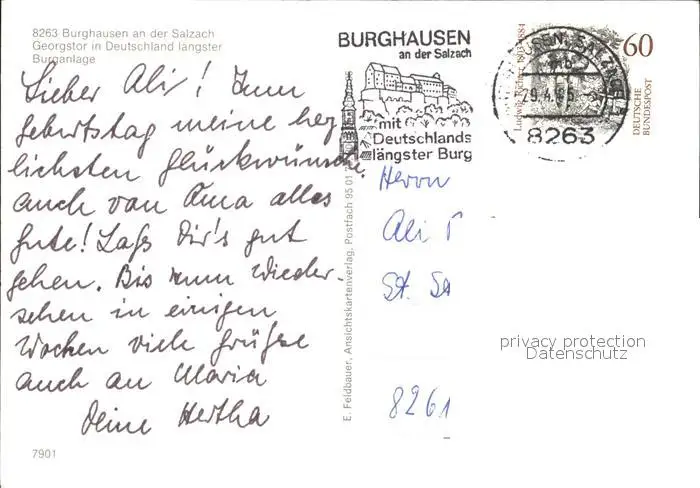 8263 Burghausen an der Salzach
Georgstor in Deutschland längster
Burganlage
Lieber Ali! Zum
Geburtstag meine herz
lichsten Glückwünsche.
auch von Oma alles
Gute! Laß Dir's gut
gehen. Bis zum Wieder-
sehen in einigen
Wochen viele Grüße
auch an Maria
Deine Hertha
7901
E. Feldbauer, Ansichtskartenverlag, Postfach 95 01
BURGHAUSEN
an der Salzach
mit
Deutschlands
längster Burg
8263
60
DEUTSCHE
BUNDESPOST
Herrn
Ali
St.
8261
privacy protection
Datenschutz